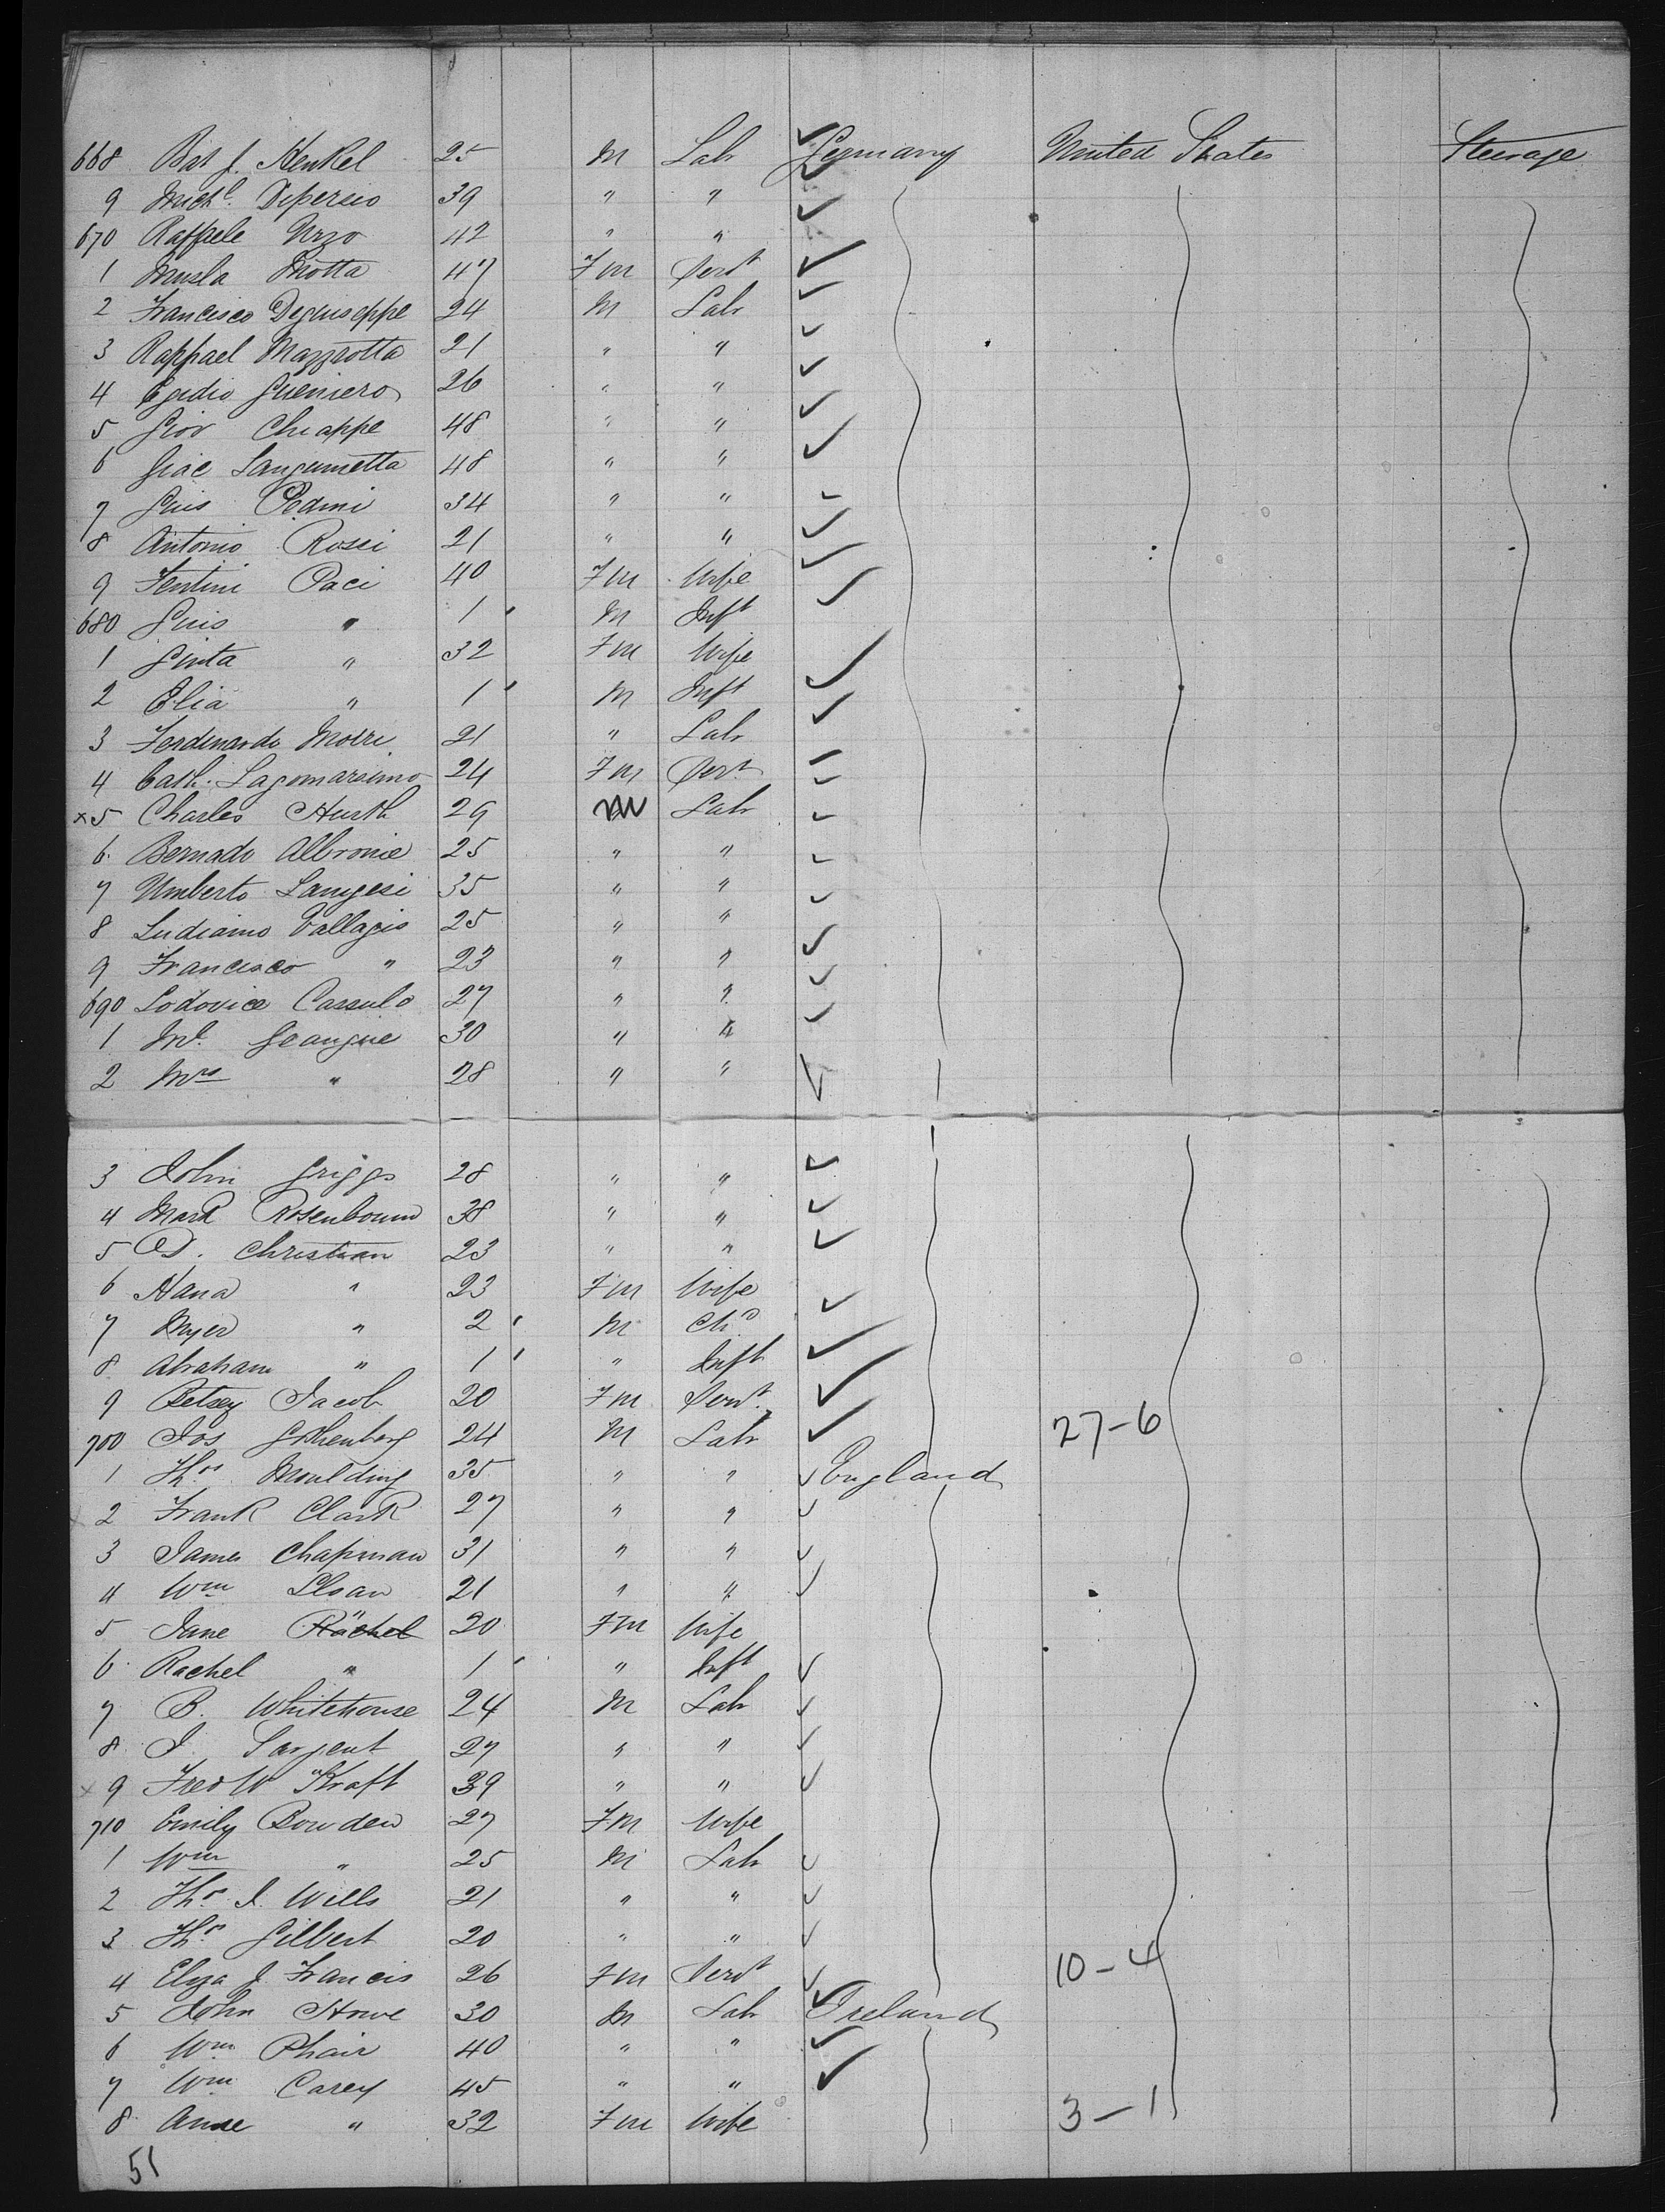 668 Bat J. Henkel 25 M Lab Germany United States Steerage
9 Michl. Dipersio 39 " "
670 Raffaele Urzo 42 " "
1 Musla Motta 47 Fm Servt
2 Francisco Deguiseppe 24 M Lab
3 Raphael Mazzrotta 21 " "
4 Egidio Gueniero 26 " "
5 Giov Chiappe 48 " "
6 Giac Sanguinetta 48 " "
7 Guis Pedrini 34 " "
8 Antonio Rossi 21 " "
9 Fentini Paci 40 Fm Wife
680 Guis " 1 M Inft
1 Guita " 32 Fm Wife
2 Elia " 1 M Inft
3 Ferdinardo Morri 21 " Lab
4 Cath. Lagomarsino 24 Fm Servt
x5 Charles Hurth 29 M Lab
6 Bernado Albronie 25 " "
7 Umberto Langesi 35 " "
8 Ludiamo Vallagis 25 " "
9 Francisco " 23 " "
690 Lodovice Cassulo 27 " "
1 Mr. Geangue 30 " "
2 Mrs " 28 " "
3 John Griggs 28 " "
4 Mark Rosenboum 38 " "
5 Christian 23 " "
6 Hana " 23 Fm Wife
7 Myer " 2 M Chd
8 Abraham " 1 " Inft
9 Betsey Jacob 20 Fm Servt
700 Jos Gothenberg 24 M Lab 27-6
1 Thos Moulding 35 " " England
2 Frank Clark 27 " "
3 James Chapman 31 " "
4 Wm Sloan 21 " "
5 Jane Rachel " 20 Fm Wife
6 Rachel " 1 " Inft
7 B. Whitehouse 24 M Lab
8 J Sargent 27 " "
x 9 Fred W Kraft 39 " "
710 Emily Bowden 27 Fm Wife
1 Wm " 25 M Lab
2 Thos. J. Wills 21 " "
3 Thos. Gilbert 20 " "
4 Eliza J. Francis 26 Fm Servt 10-4
5 John Howe 30 M Lab Ireland
6 Wm Phair 40 " "
7 Wm Carey 45 " "
8 Anne " 32 Fm Wife 3-1
51